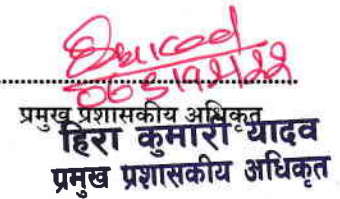 प्रमुख प्रशासकीय अधिकृत
हिरा कुमारी यादव
प्रमुख प्रशासकीय अधिकृत